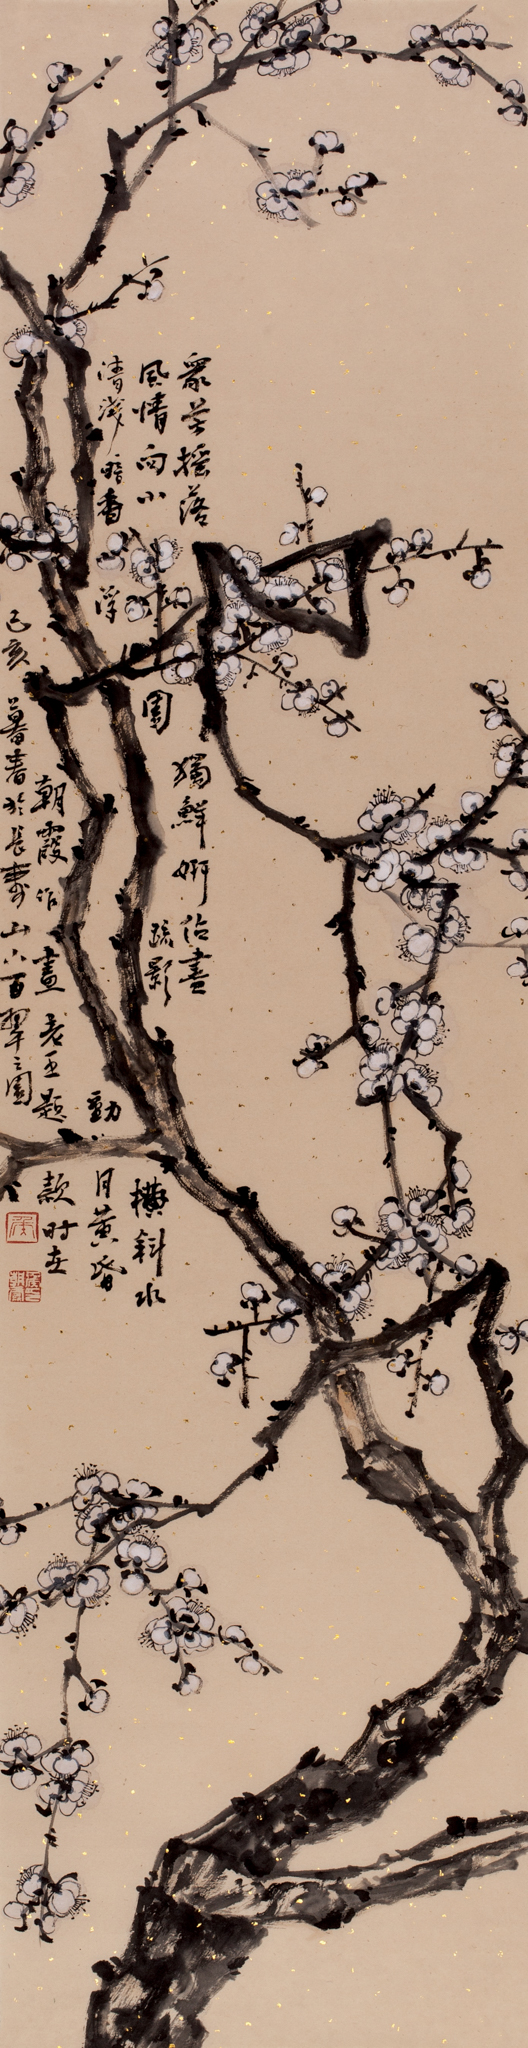 眾芳搖落獨鮮妍佔盡
風情向小園疏影橫斜水
清淺暗香浮動月黃昏
朝霞作畫老王題款時在
己亥暮春於長壽山百翠之園